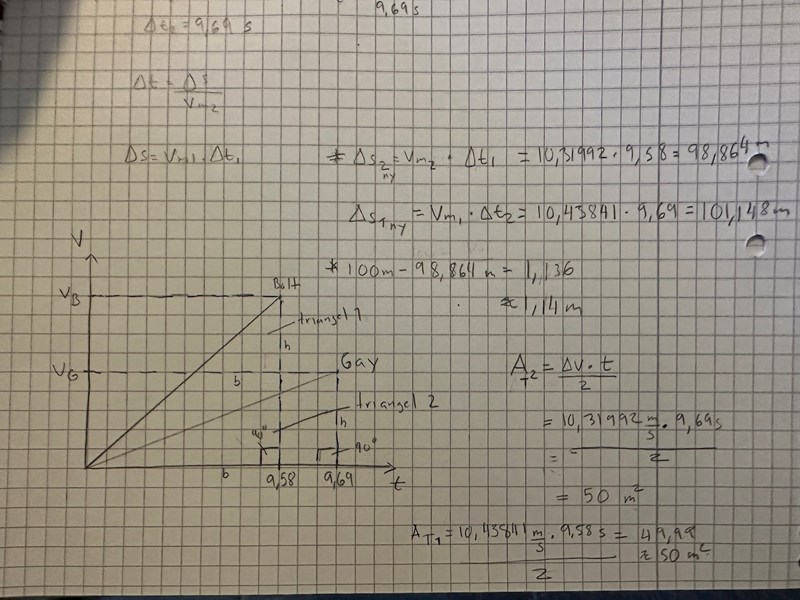 9,69 s
Δt₂ = 9,69 s
Δt = Δs / Vm2
Δs = Vm1 · Δt₁
* Δs₂ny = Vm2 · Δt₁ = 10,31992 · 9,58 = 98,864 m
Δs₁ny = Vm1 · Δt₂ = 10,43841 · 9,69 = 101,148 m
* 100m - 98,864 m = 1,136
≈ 1,14 m
V
VB
Bolt
triangel 1
h
VG
Gay
b
triangel 2
h
90°
90°
b
9,58
9,69
t
AT2 = Δv · t / 2
= 10,31992 m/s · 9,69 s
= 2
= 50 m²
AT1 = 10,43841 m/s · 9,58 s / 2 = 49,99
≈ 50 m²